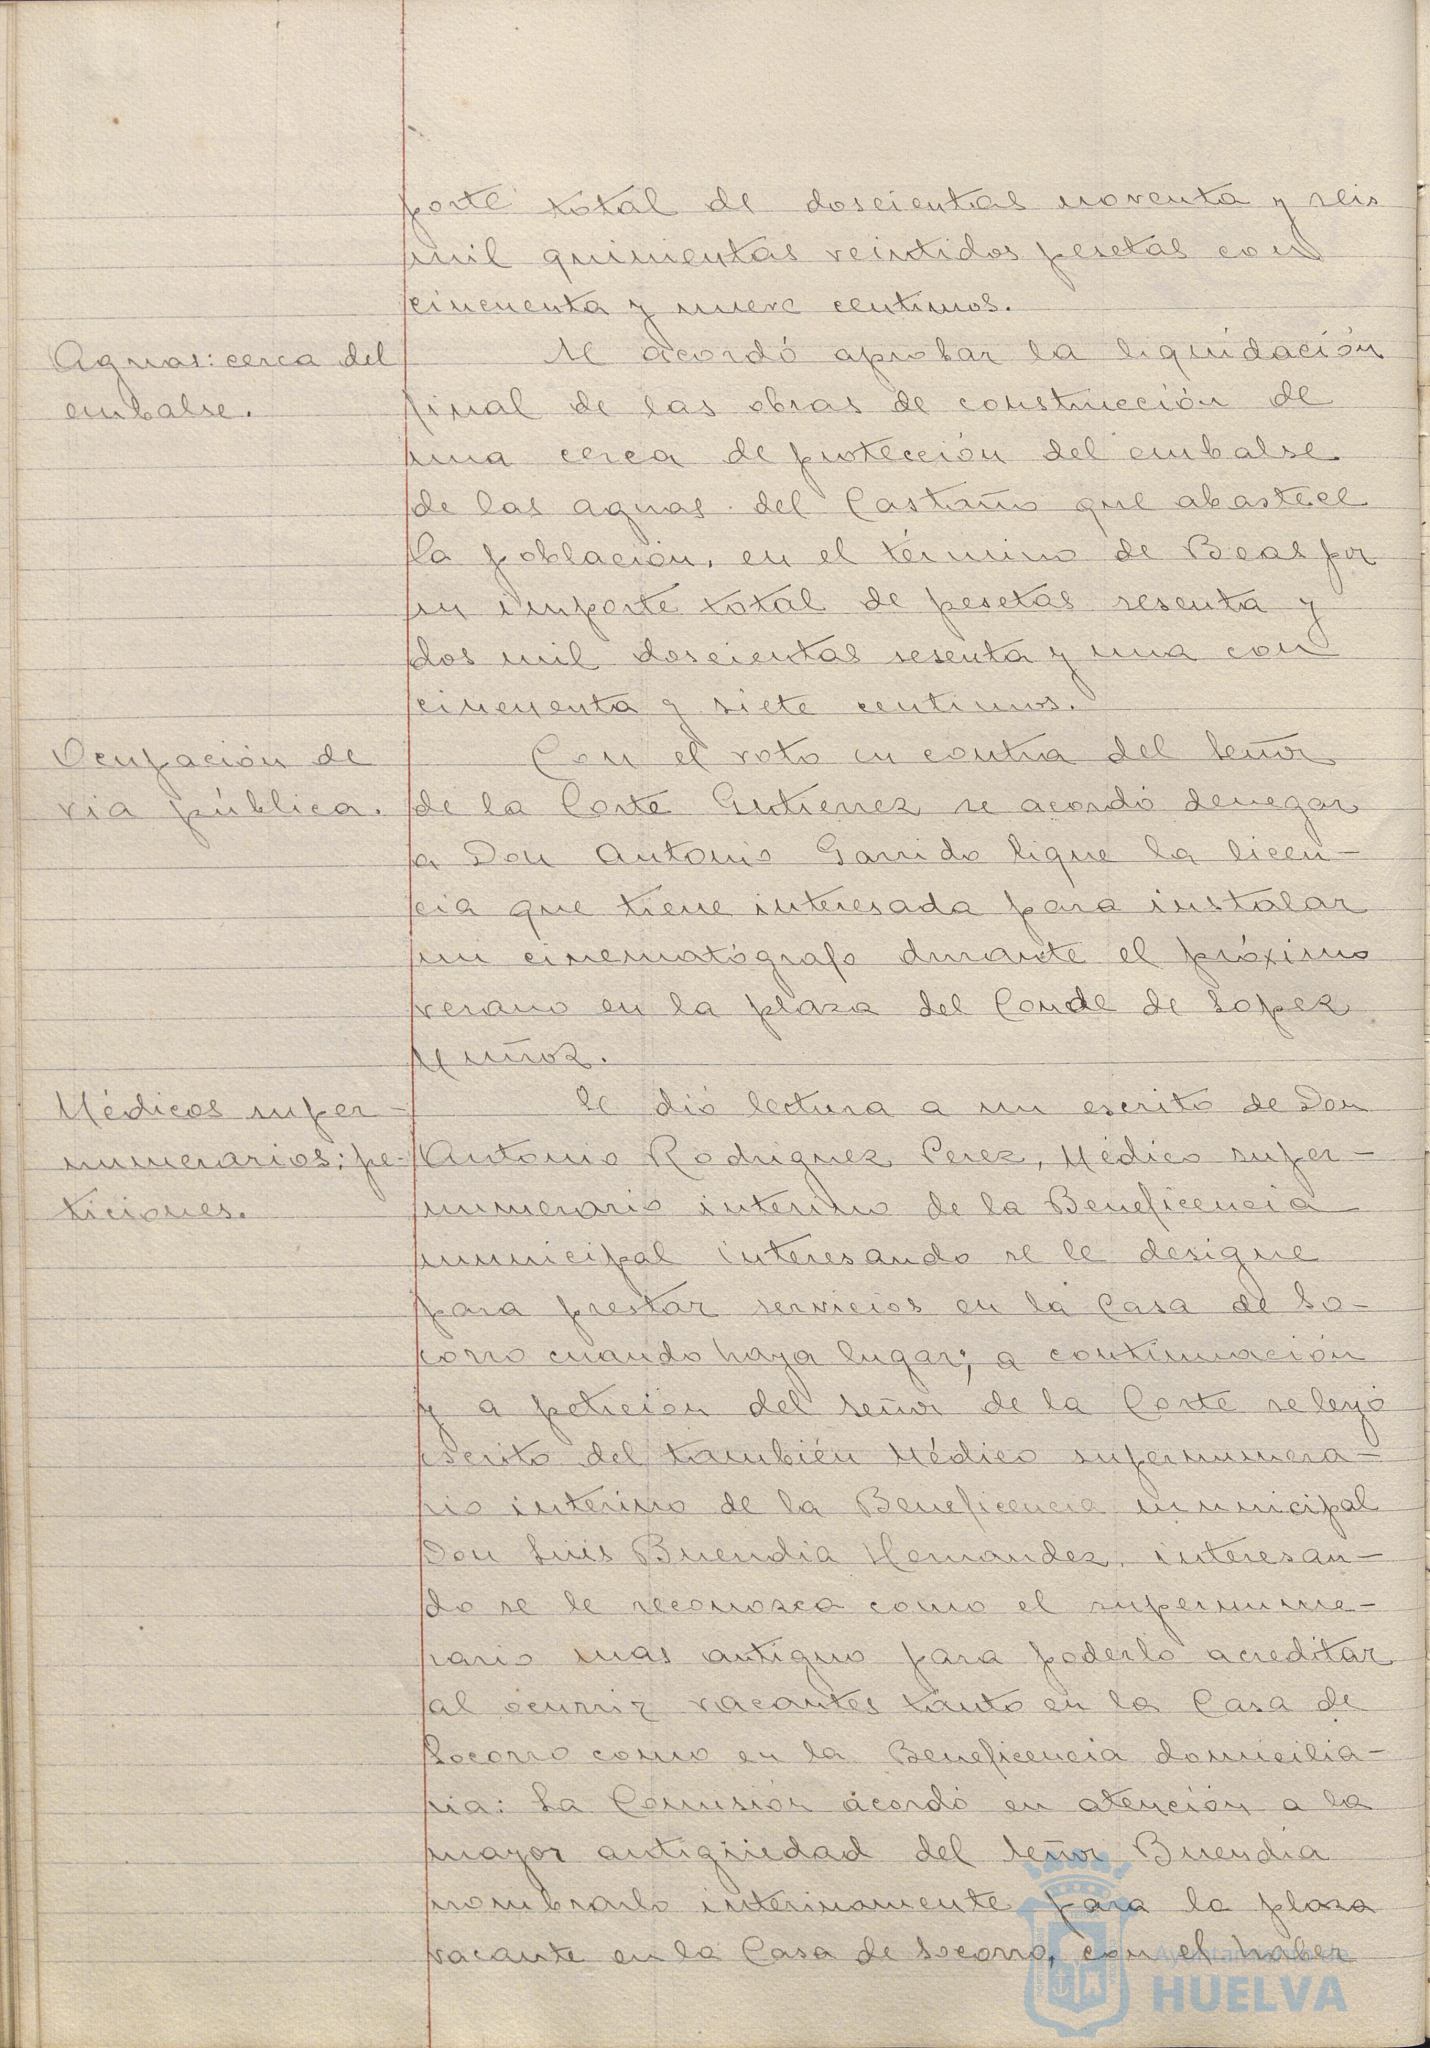 porte total de doscientas noventa y seis
mil quinientas veintidos pesetas con
cincuenta y nueve centimos.
Aguas: cerca del
embalse.
Se acordó aprobar la liquidación
final de las obras de construcción de
una cerca de protección del embalse
de las aguas del Castaño que abastece
la población, en el término de Beas por
un importe total de pesetas sesenta y
dos mil doscientas sesenta y una con
cincuenta y siete centimos.
Ocupación de
via pública.
Con el voto en contra del Señor
de la Corte Gutierrez se acordó denegar
a Don Antonio Garrido Ligue la licen-
cia que tiene interesada para instalar
un cinematógrafo durante el próximo
verano en la plaza del Conde de Lopez
Muñoz.
Médicos super-
numerarios: pe-
ticiones.
Se dió lectura a un escrito de Don
Antonio Rodriguez Perez, Médico super-
numerario interino de la Beneficencia
municipal interesando se le designe
para prestar servicios en la Casa de So-
corro cuando haya lugar; a continuación
y a petición del Señor de la Corte se leyó
escrito del también Médico supernumera-
rio interino de la Beneficencia municipal
Don Luis Buendia Hernandez, interesan-
do se le reconozca como el supernume-
rario mas antiguo para poderlo acreditar
al ocurrir vacantes tanto en la Casa de
Socorro como en la Beneficencia domicilia-
ria: La Comisión acordó en atención a la
mayor antigüedad del Señor Buendia
nombrarlo interinamente para la plaza
vacante en la Casa de Socorro, con el haber
Ayuntamiento de
HUELVA